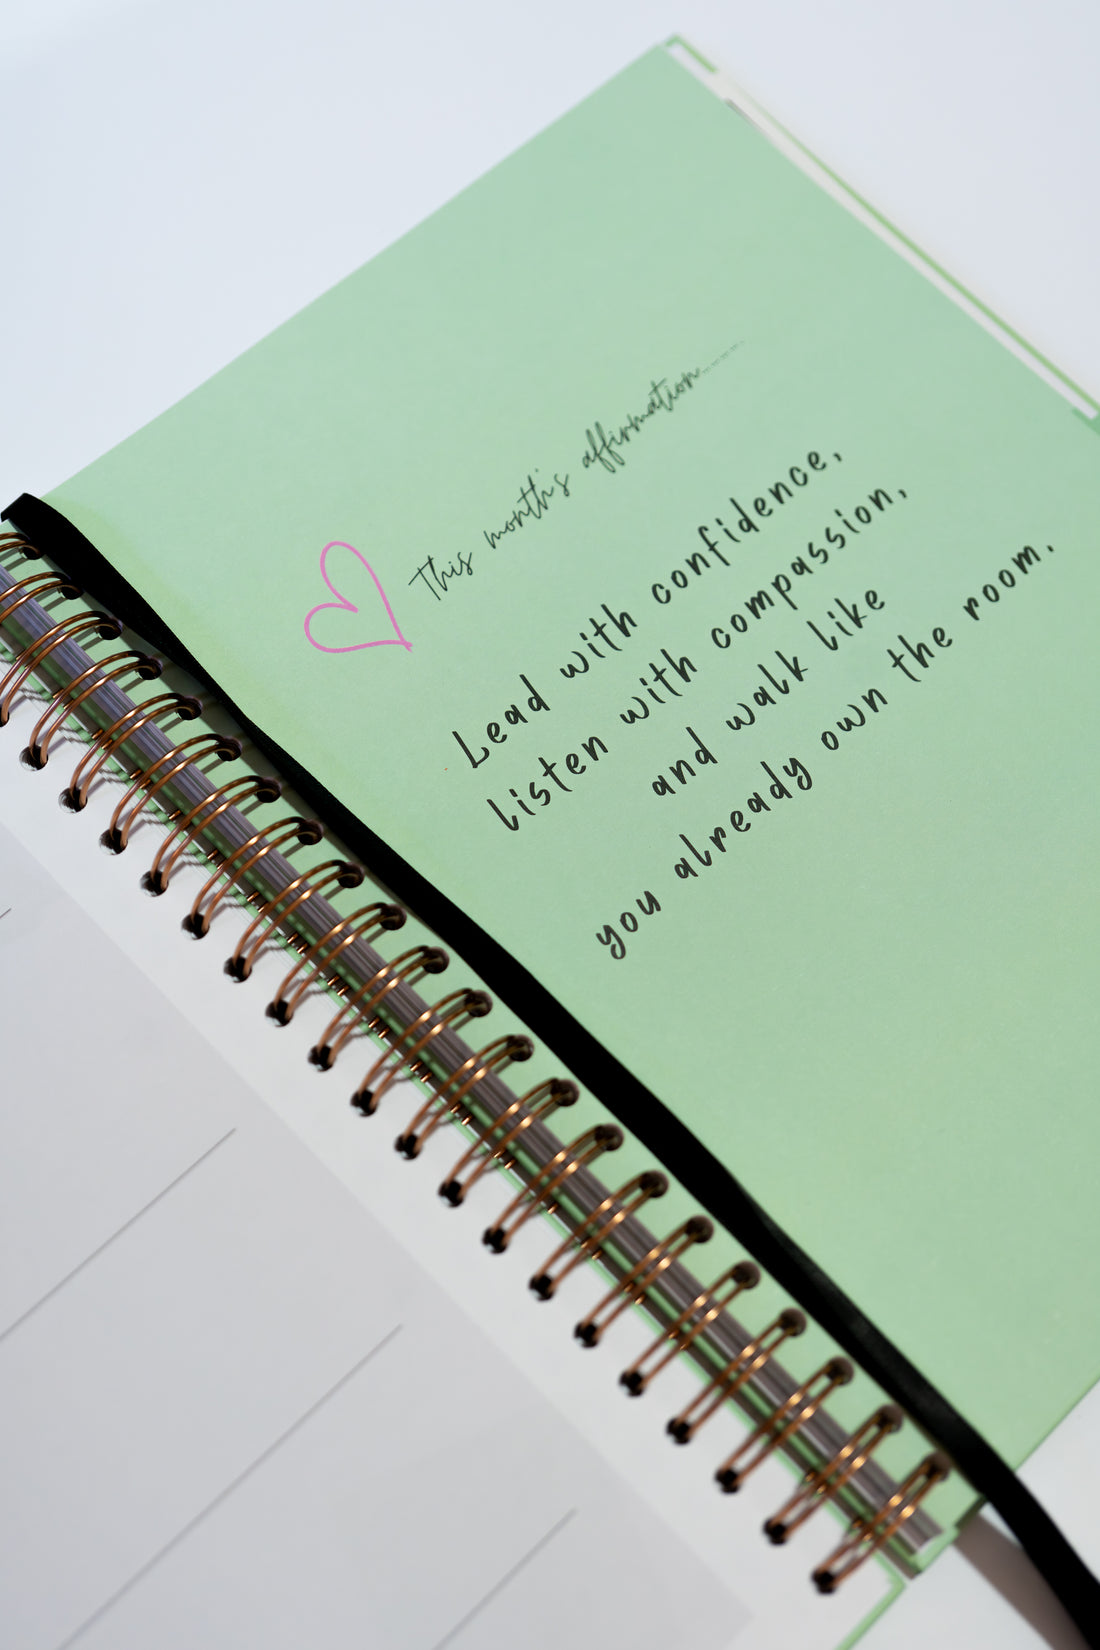 This month's affirmation..........
Lead with confidence,
listen with compassion,
and walk like
you already own the room.